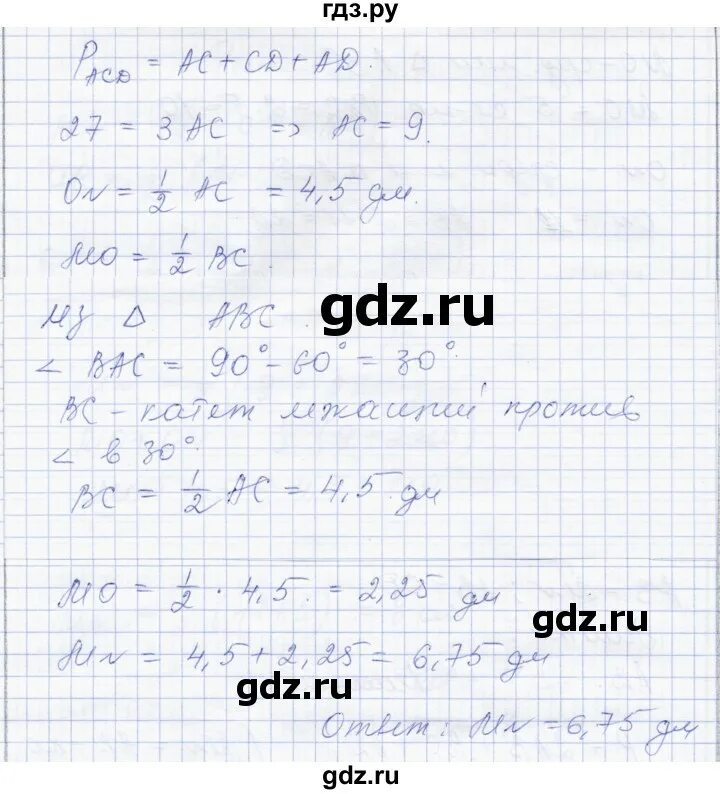 гдз.ру
P_ACD = AC + CD + AD.
27 = 3 AC => AC = 9.
ON = 1/2 AC = 4,5 дм.
MO = 1/2 BC.
gdz.ru
Из △ ABC.
∠ BAC = 90° - 60° = 30°.
BC - катет лежащий против
∠ в 30°.
BC = 1/2 AC = 4,5 дм
MO = 1/2 · 4,5 = 2,25 дм
gdz.ru
MN = 4,5 + 2,25 = 6,75 дм
gdz.ru
Ответ: MN = 6,75 дм
gdz.ru